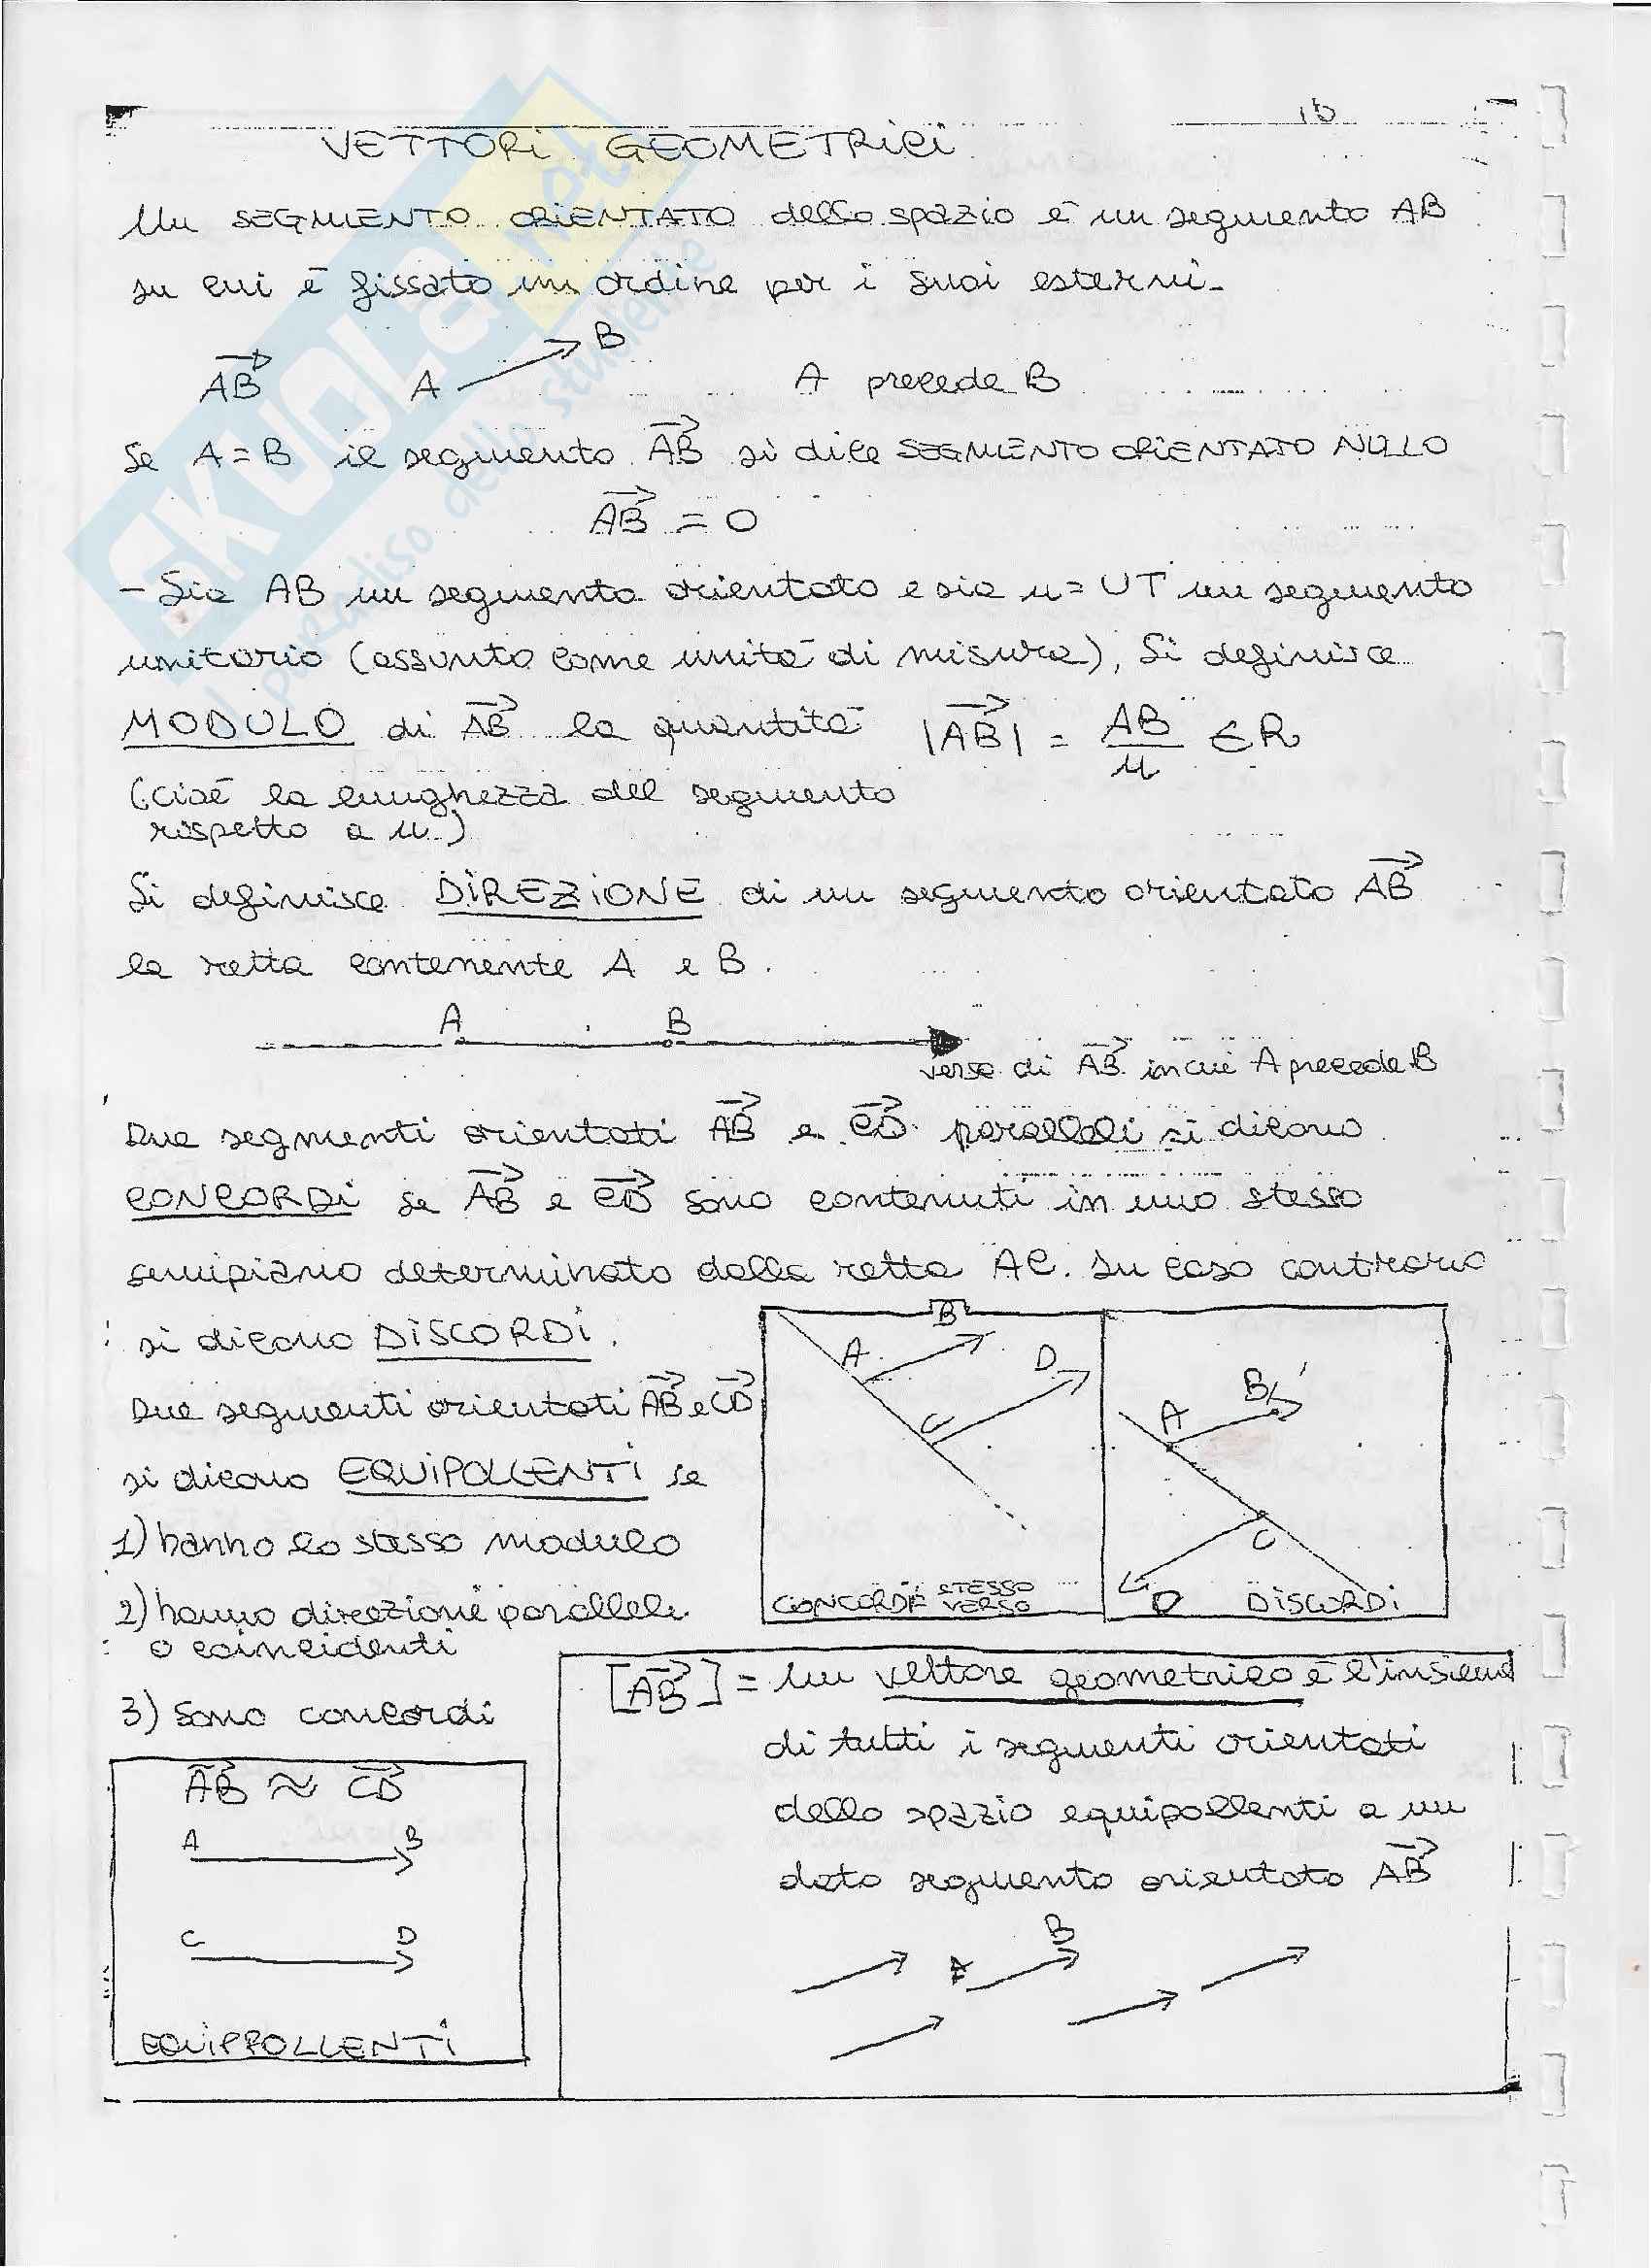 16
VETTORI GEOMETRICI
Un SEGMENTO ORIENTATO dello spazio è un segmento AB
su cui è fissato un ordine per i suoi estermi.
AB A B A precede B
Se A=B il segmento AB si dice SEGMENTO ORIENTATO NULLO
AB = 0
- Sia AB un segmento orientato e sia u = UT un segmento
unitario (assunto come unità di misura), Si definisce
MODULO di AB la quantità |AB| = AB/u ∈ R
(cioè la lunghezza del segmento
rispetto a u)
Si definisce DIREZIONE di un segmento orientato AB
la retta contenente A e B.
A B
verso di AB in cui A precede B
Due segmenti orientati AB e CD paralleli si dicono
CONCORDI se AB e CD sono contenuti in uno stesso
semipiano determinato dalla retta AC. In caso contrario
si dicono DISCORDI.
Due segmenti orientati AB e CD
si dicono EQUIPOLLENTI se
1) hanno lo stesso modulo
2) hanno direzione parallele
o coincidenti
3) Sono concordi
A B C D
CONCORDI STESSO VERSO
A B C D
DISCORDI
AB ≈ CD
A B
C D
EQUIPPOLLENTI
[AB] = Un vettore geometrico è l'insieme
di tutti i segmenti orientati
dello spazio equipollenti a un
dato segmento orientato AB
A B
SKUOLA.net
il paradiso dello studente